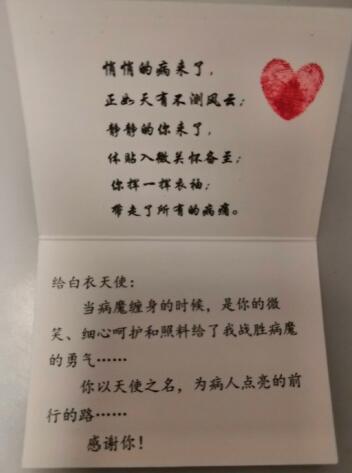 悄悄的病来了，
正如天有不测风云；
静静的你来了，
体贴入微关怀备至；
你挥一挥衣袖；
带走了所有的病痛。
给白衣天使：
当病魔缠身的时候，是你的微
笑、细心呵护和照料给了我战胜病魔
的勇气……
你以天使之名，为病人点亮的前
行的路……
感谢你！